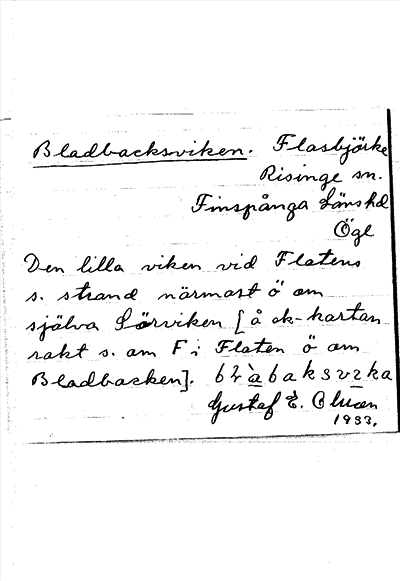 Bladbacksviken. Flasbjörke
Risinge sn.
Finspånga Länshd
Ögl
Den lilla viken vid Flatens
s. strand närmast ö om
själva Sörviken [å ek-kartan
rakt s. om F i Flaten ö om
Bladbacken].
Gustaf E. Oluen
1933.